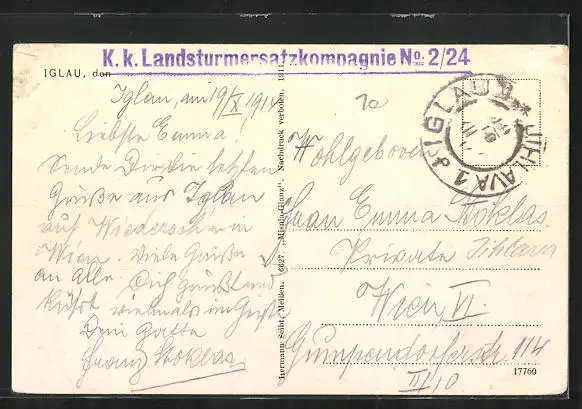 K. k. Landsturmersatzkompagnie No. 2/24
IGLAU, den
Iglau, am 19/X 1914
Liebste Emma!
Sende Dir die letzten
Grüße aus Iglau
auf Wiedersehn in
Wien. Viele Grüße
an Alle. Dich grüßt und
küßt vielmals im Geiste
Dein Gatte
Franz Stoklas
Hermann Seibt, Meißen. 6627 „Mismis-Glanz". Nachdruck verboten. 191
20
IGLAU 1 * JIHLAVA 1
Wohlgeboren
Frau Emma Stoklas
Private Jihlava
Wien, VI.
Gumpendorferstr. 114
III/10
17760